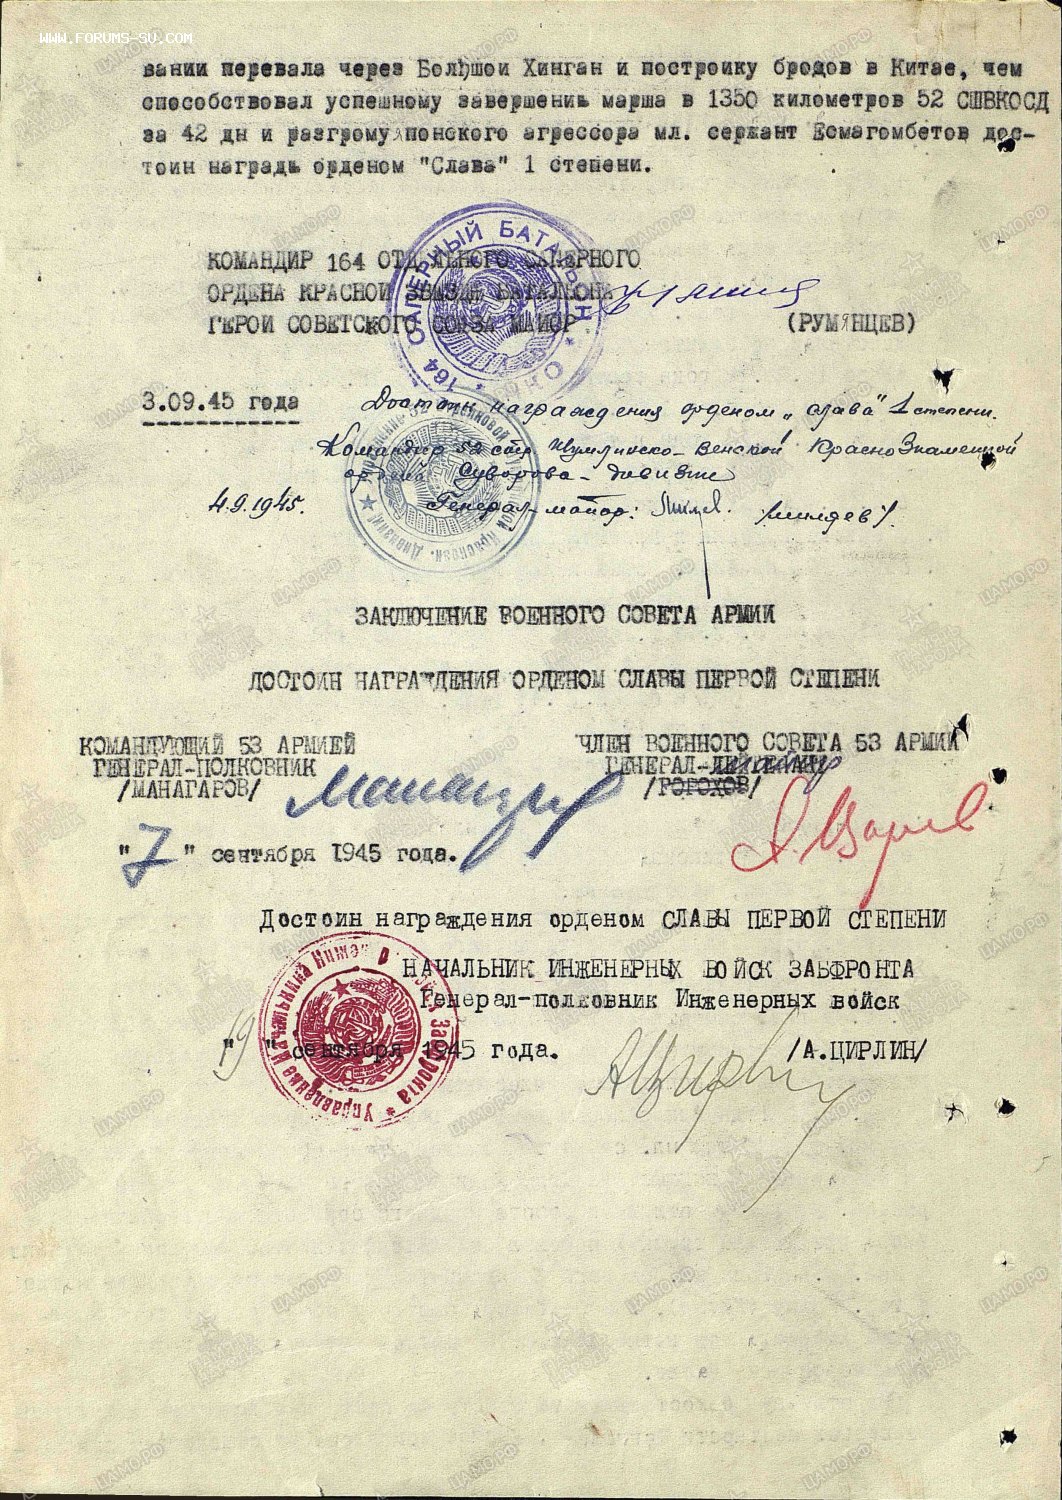 WWW.FORUMS-SU.COM
вании перевала через Большой Хинган и постройку бродов в Китае, чем
способствовал успешному завершению марша в 1350 километров 52 СШВКОСД
за 42 дн и разгрому японского агрессора мл. сержант Есмагомбетов дос-
тоин наградь орденом "Слава" 1 степени.
КОМАНДИР 164 ОТДЕЛЬНОГО САПЕРНОГО
ОРДЕНА КРАСНОЙ ЗВЕЗДЫ БАТАЛЬОНА
ГЕРОЙ СОВЕТСКОГО СОЮЗА МАЙОР (РУМЯНЦЕВ)
164 САПЕРНЫЙ БАТАЛЬОН
3.09.45 года
Достоин награждения орденом „Слава" 1 степени.
Командир 52 стр Шумлинско-Венской Краснознаменной
ордена Суворова - дивизии
4.9.1945. Генерал-майор: /миляев/
ЗАКЛЮЧЕНИЕ ВОЕННОГО СОВЕТА АРМИИ
ДОСТОИН НАГРАЖДЕНИЯ ОРДЕНОМ СЛАВЫ ПЕРВОЙ СТЕПЕНИ
КОМАНДУЮЩИЙ 53 АРМИЕЙ
ГЕНЕРАЛ-ПОЛКОВНИК
/МАНАГАРОВ/
ЧЛЕН ВОЕННОГО СОВЕТА 53 АРМИИ
ГЕНЕРАЛ-ЛЕЙТЕНАНТ майор
/ГОРОХОВ/
Манагаров
А. Царев
"7" сентября 1945 года.
Достоин награждения орденом СЛАВЫ ПЕРВОЙ СТЕПЕНИ
НАЧАЛЬНИК ИНЖЕНЕРНЫХ ВОЙСК ЗАБФРОНТА
Генерал-полковник Инженерных войск
"19" сентября 1945 года. /А.ЦИРЛИН/
АЦирлин
Управление Начальника Инжен
Забфронта
ЦАМО.РФ
ПАМЯТЬ НАРОДА